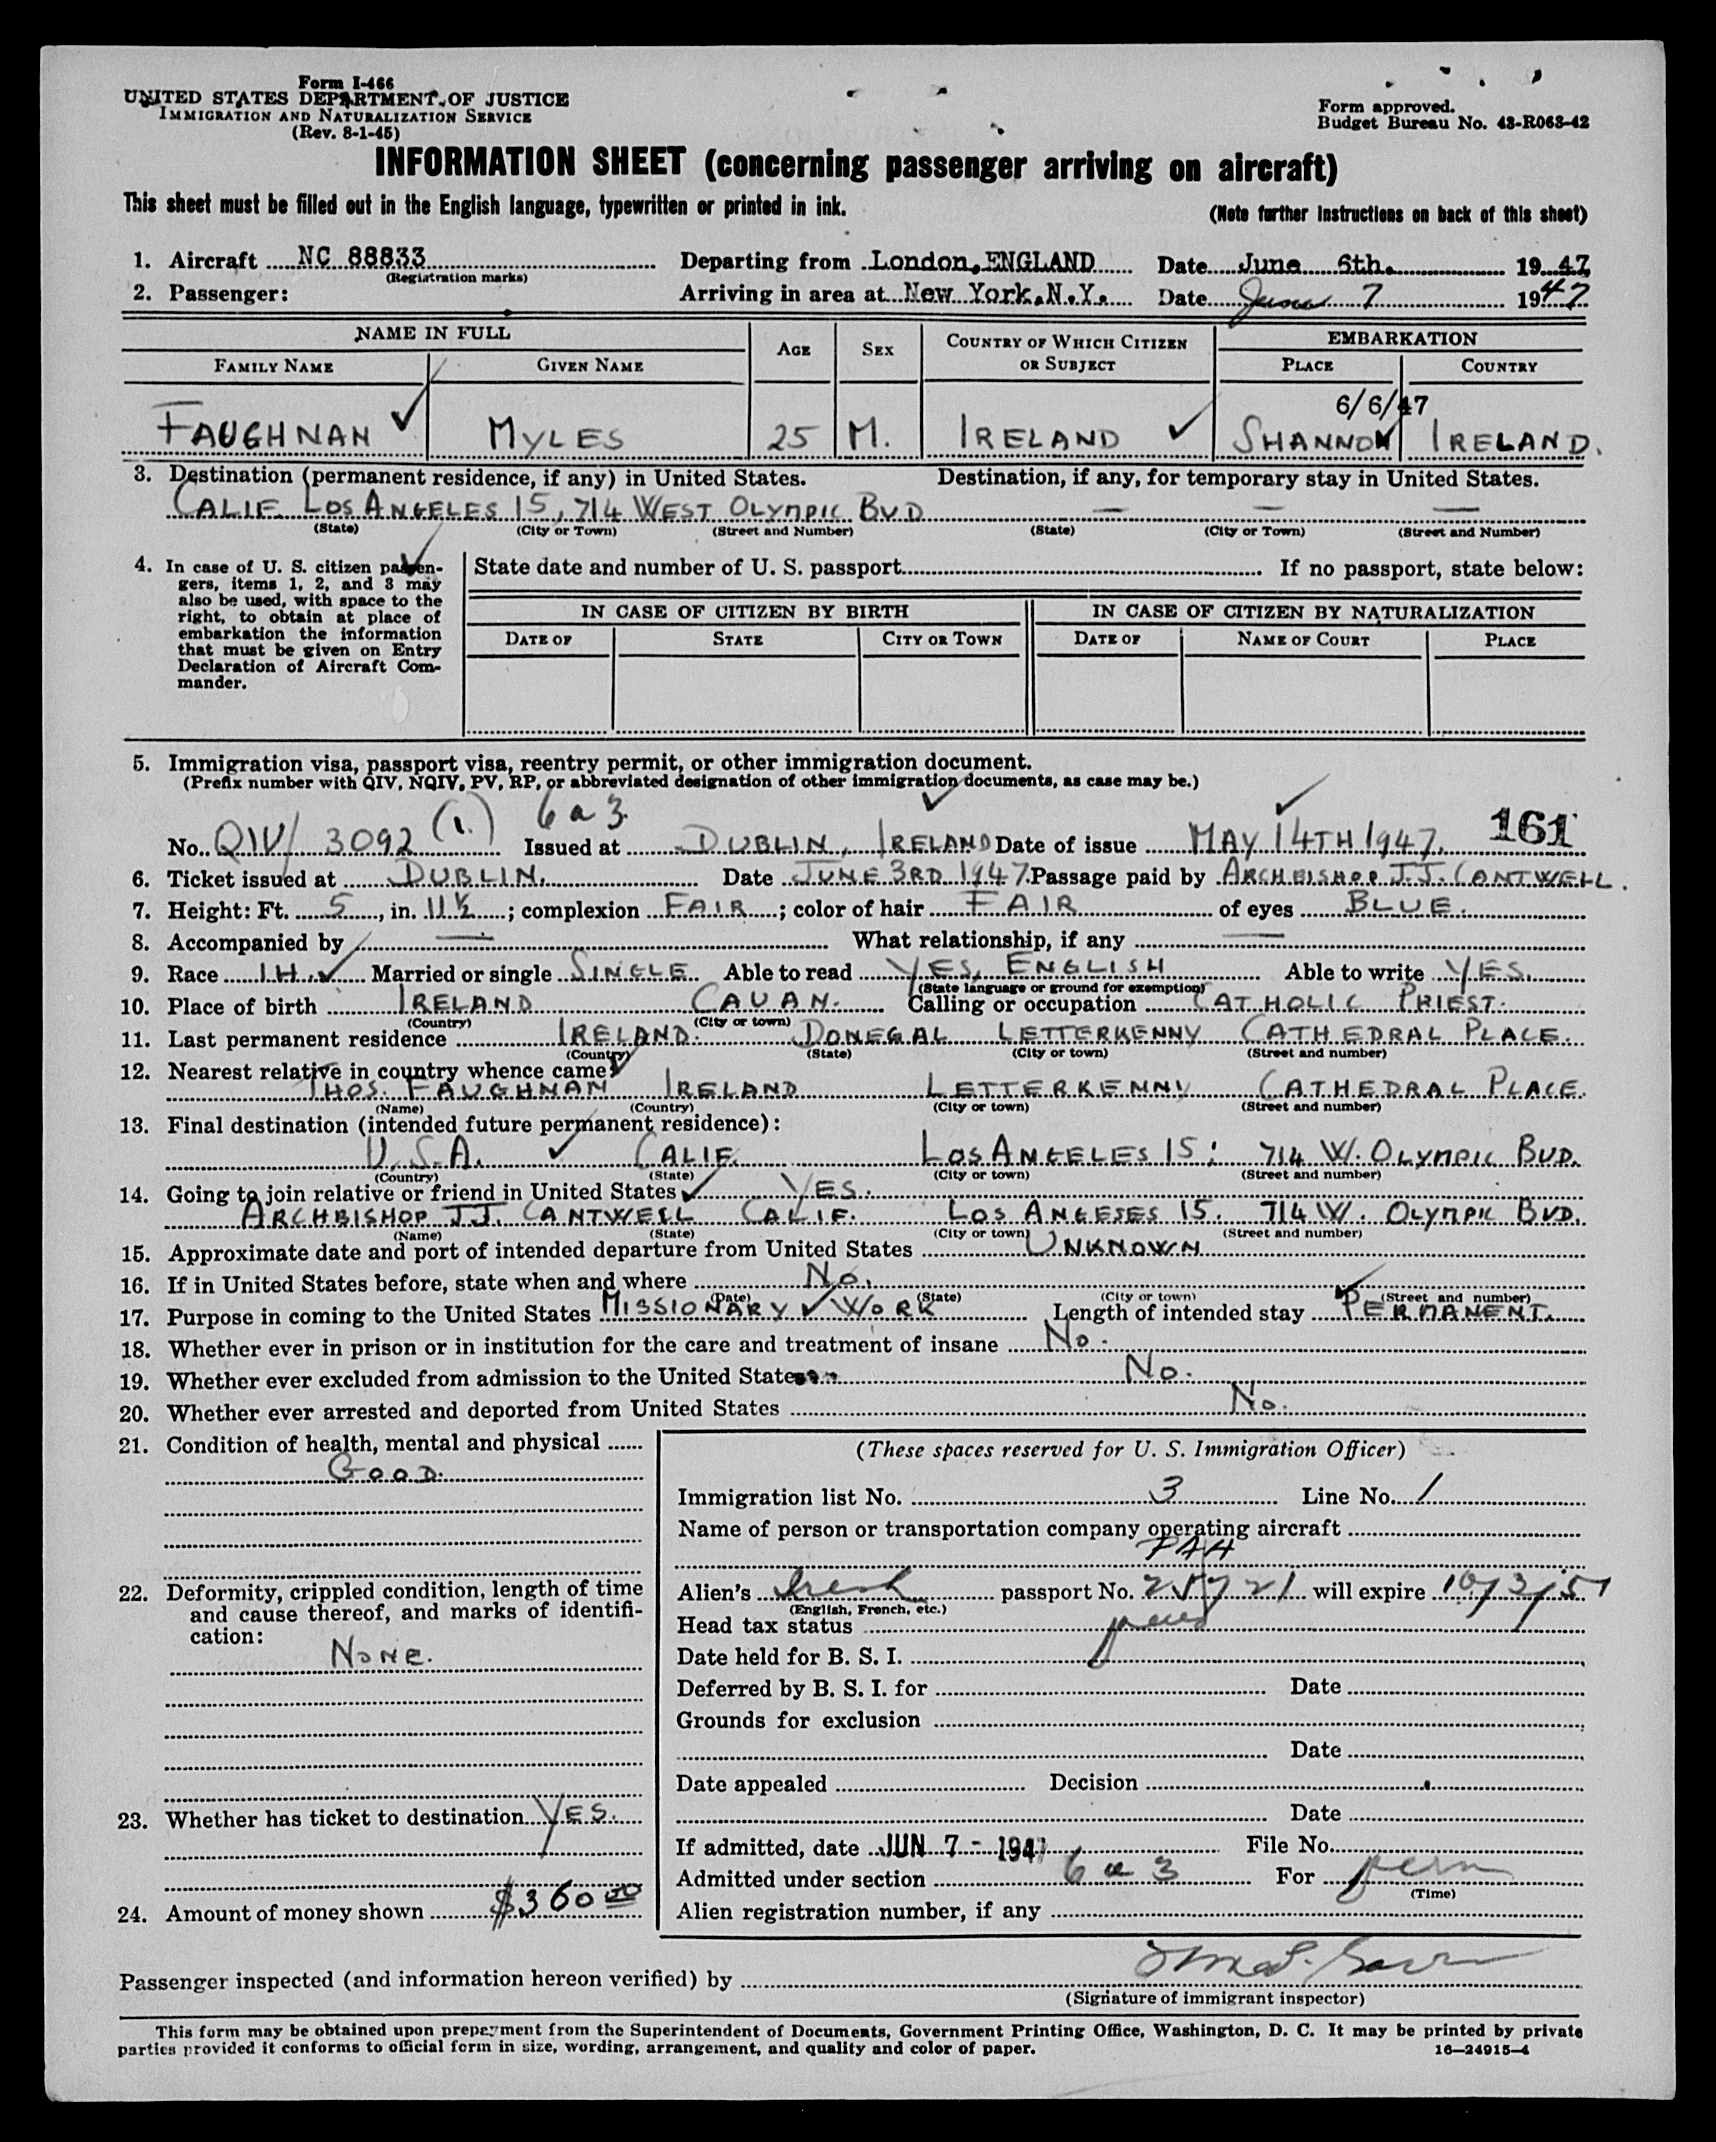 Form I-466
UNITED STATES DEPARTMENT OF JUSTICE
IMMIGRATION AND NATURALIZATION SERVICE
(Rev. 8-1-45)
Form approved.
Budget Bureau No. 43-R063-42
INFORMATION SHEET (concerning passenger arriving on aircraft)
This sheet must be filled out in the English language, typewritten or printed in ink.
(Note further instructions on back of this sheet)
1. Aircraft NC 88833 Departing from London, ENGLAND Date June 6th. 1947
(Registration marks)
2. Passenger: Arriving in area at New York, N.Y. Date June 7 1947
NAME IN FULL AGE SEX COUNTRY OF WHICH CITIZEN OR SUBJECT EMBARKATION
FAMILY NAME GIVEN NAME PLACE COUNTRY
6/6/47
FAUGHNAN MYLES 25 M. IRELAND SHANNON IRELAND.
3. Destination (permanent residence, if any) in United States. Destination, if any, for temporary stay in United States.
CALIF. LOS ANGELES 15, 714 WEST OLYMPIC BVD — — —
(State) (City or Town) (Street and Number) (State) (City or Town) (Street and Number)
4. In case of U. S. citizen passengers, items 1, 2, and 3 may
also be used, with space to the
right, to obtain at place of
embarkation the information
that must be given on Entry
Declaration of Aircraft Commander.
State date and number of U. S. passport If no passport, state below:
IN CASE OF CITIZEN BY BIRTH IN CASE OF CITIZEN BY NATURALIZATION
DATE OF STATE CITY OR TOWN DATE OF NAME OF COURT PLACE
5. Immigration visa, passport visa, reentry permit, or other immigration document.
(Prefix number with QIV, NQIV, PV, RP, or abbreviated designation of other immigration documents, as case may be.)
6 a 3
161
No. QIV/ 3092 (1.) Issued at DUBLIN, IRELAND Date of issue MAY 14TH 1947.
6. Ticket issued at DUBLIN. Date JUNE 3RD 1947. Passage paid by ARCHBISHOP J.J. CANTWELL.
7. Height: Ft. 5, in. 11½; complexion FAIR; color of hair FAIR of eyes BLUE.
8. Accompanied by — What relationship, if any —
9. Race IH. Married or single SINGLE. Able to read YES, ENGLISH Able to write YES.
(State language or ground for exemption)
10. Place of birth IRELAND CAVAN. Calling or occupation CATHOLIC PRIEST.
(Country) (City or town)
11. Last permanent residence IRELAND. DONEGAL LETTERKENNY CATHEDRAL PLACE.
(Country) (State) (City or town) (Street and number)
12. Nearest relative in country whence came
THOS. FAUGHNAN IRELAND LETTERKENNY CATHEDRAL PLACE.
(Name) (Country) (City or town) (Street and number)
13. Final destination (intended future permanent residence):
U.S.A. CALIF. LOS ANGELES 15: 714 W. OLYMPIC BVD.
(Country) (State) (City or town) (Street and number)
14. Going to join relative or friend in United States YES.
ARCHBISHOP J.J. CANTWELL CALIF. LOS ANGESES 15. 714 W. OLYMPIC BVD.
(Name) (State) (City or town) (Street and number)
15. Approximate date and port of intended departure from United States UNKNOWN
16. If in United States before, state when and where No.
(Date) (State) (City or town) (Street and number)
17. Purpose in coming to the United States MISSIONARY WORK Length of intended stay PERMANENT.
18. Whether ever in prison or in institution for the care and treatment of insane No.
19. Whether ever excluded from admission to the United States No.
20. Whether ever arrested and deported from United States No.
21. Condition of health, mental and physical
GOOD.
22. Deformity, crippled condition, length of time
and cause thereof, and marks of identification:
NONE.
23. Whether has ticket to destination YES.
24. Amount of money shown $360 00
(These spaces reserved for U. S. Immigration Officer)
Immigration list No. 3 Line No. 1
Name of person or transportation company operating aircraft
PAA
Alien's Irish passport No. 25721 will expire 10/3/51
(English, French, etc.)
Head tax status
Date held for B. S. I.
Deferred by B. S. I. for Date
Grounds for exclusion
Date
Date appealed Decision
Date
If admitted, date JUN 7 - 1947 File No.
Admitted under section 6 a 3 For perm
(Time)
Alien registration number, if any
Passenger inspected (and information hereon verified) by
(Signature of immigrant inspector)
This form may be obtained upon prepayment from the Superintendent of Documents, Government Printing Office, Washington, D. C. It may be printed by private
parties provided it conforms to official form in size, wording, arrangement, and quality and color of paper.
16—24915-4